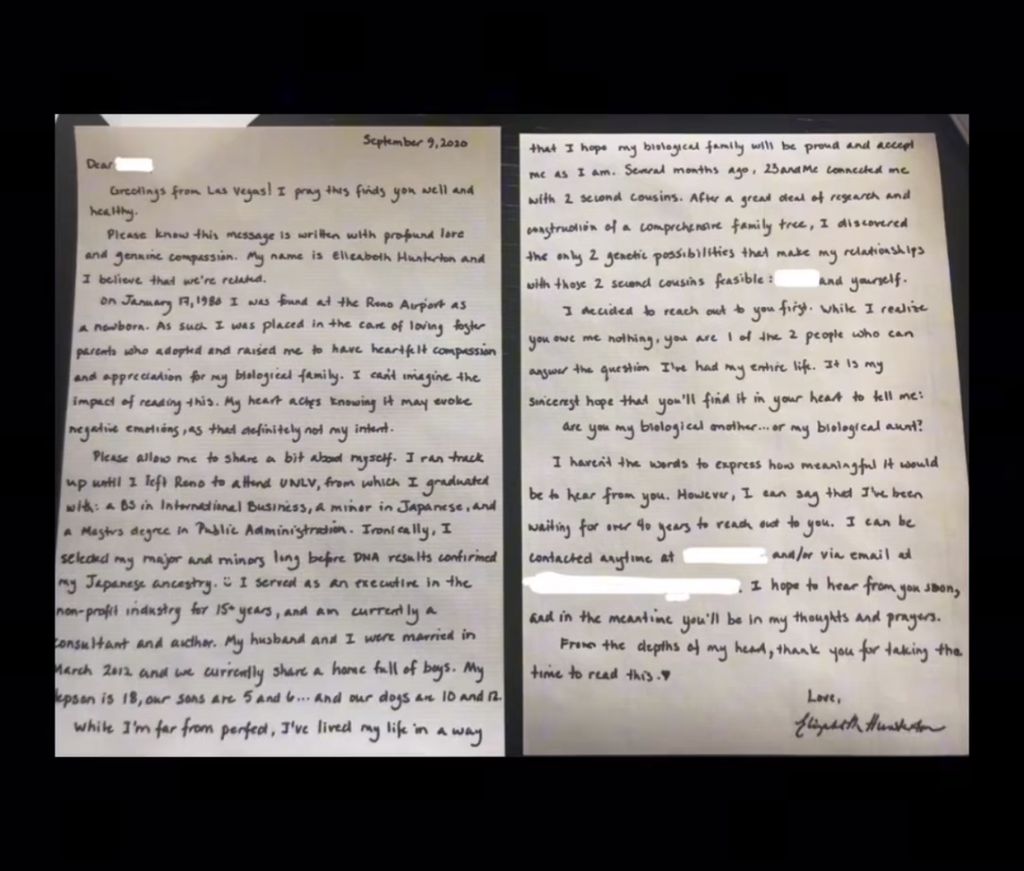 September 9, 2020
Dear
Greetings from Las Vegas! I pray this finds you well and
healthy.
Please know this message is written with profound love
and genuine compassion. My name is Elizabeth Hunterton and
I believe that we're related.
On January 17, 1980 I was found at the Reno Airport as
a newborn. As such I was placed in the care of loving foster
parents who adopted and raised me to have heartfelt compassion
and appreciation for my biological family. I can't imagine the
impact of reading this. My heart aches knowing it may evoke
negative emotions, as that definitely not my intent.
Please allow me to share a bit about myself. I ran track
up until I left Reno to attend UNLV, from which I graduated
with: a BS in International Business, a minor in Japanese, and
a Masters degree in Public Administration. Ironically, I
selected my major and minors long before DNA results confirmed
my Japanese ancestry. I served as an executive in the
non-profit industry for 15+ years, and am currently a
consultant and author. My husband and I were married in
March 2012 and we currently share a home full of boys. My
epson is 18, our sons are 5 and 6... and our dogs are 10 and 12.
While I'm far from perfect, I've lived my life in a way
that I hope my biological family will be proud and accept
me as I am. Several months ago, 23andMe connected me
with 2 second cousins. After a great deal of research and
construction of a comprehensive family tree, I discovered
the only 2 genetic possibilities that make my relationships
with those 2 second cousins feasible: and yourself.
I decided to reach out to you first. While I realize
you owe me nothing, you are 1 of the 2 people who can
answer the question I've had my entire life. It is my
sincerest hope that you'll find it in your heart to tell me:
are you my biological mother... or my biological aunt?
I haven't the words to express how meaningful it would
be to hear from you. However, I can say that I've been
waiting for over 40 years to reach out to you. I can be
contacted anytime at and/or via email at
. I hope to hear from you soon,
and in the meantime you'll be in my thoughts and prayers.
From the depths of my heart, thank you for taking the
time to read this. ♥
Love,
Elizabeth Hunterton